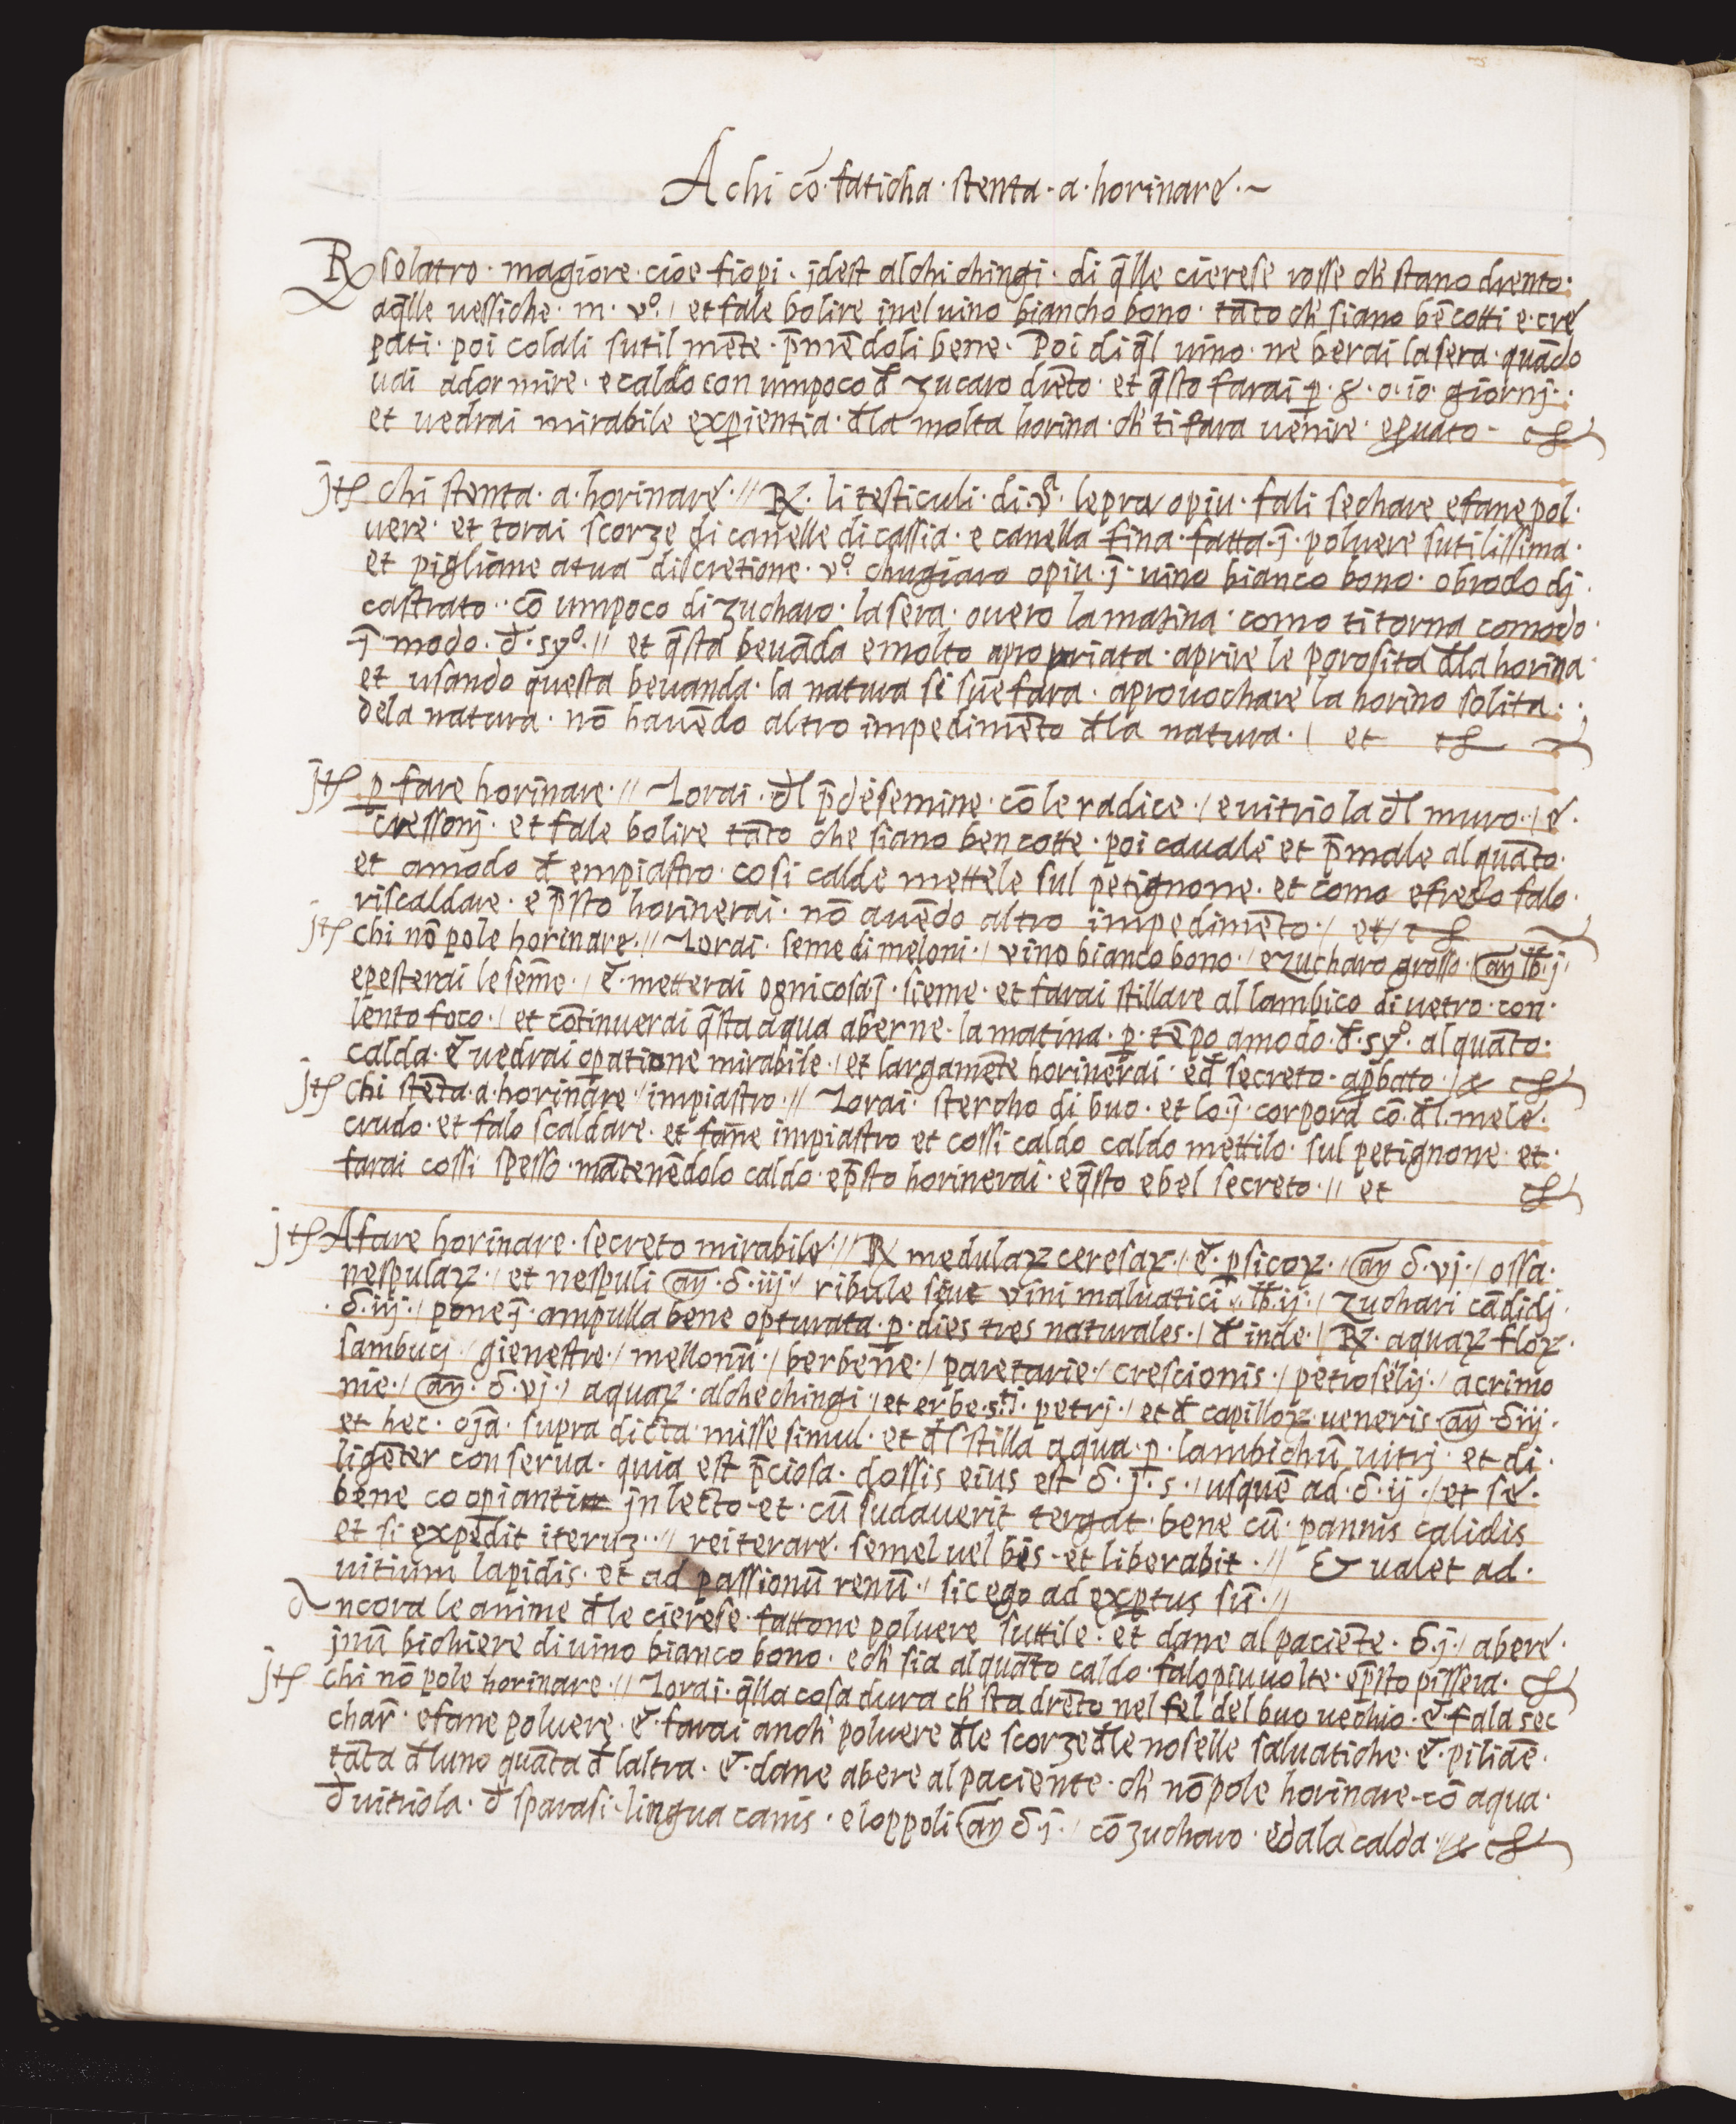 A chi cō· faticha · stenta · a · horinare · ~
℞ solatro · magiore · cioe fiopi · jdest alchichingi · di q̄lle cierese rosse ch̄ stano drento ·
aq̄lle uessiche · m · vᵒ · / et fale bolire inel uino biancho bono · tāto ch̄ siano bēcotti e · cre
pati · poi colali sutil mēte · p̄mēdoli bene · Poi di q̄l uino · ne berai la sera · quādo
uai adormire · e caldo con umpoco đ zucaro drēto · et q̄sto farai ꝑ · 8 · o · io · giornj ·
et uedrai mirabile exꝑientia · đla molta horina · ch̄ ti fara uenire · eꝓuato ·
jtē chi stenta · a · horinare · // ℞ · li testiculi · di · · lepra opiu · fali sechare e fane pol ·
uere · et torai scorze di canelle di cassia · e canella fina · fatta · ī · poluere sutilissima ·
et pigliane atua discretione · vᵒ chugiaro opiu · ī · uino bianco bono · obrodo dj ·
castrato · cō umpoco di zucharo · la sera · ouero la matina · como ti torna comodo ·
ī modo · đ · syᵒ · // et q̄sta beuāda e molto apropriata · aprire le porosita đla horina ·
et usando questa beuanda · la natura si sue fara · aprouochare la horino solita ·
dela natura · nō hauēdo altro impedimēto đla natura · / et
jtē ꝑ fare horinare · // Torai · đl p̄desemine · cō le radice · / e uitriola đl muro · / e ·
cressonj · et fale bolire tāto che siano ben cotte · poi cauale et p̄male alquāto ·
et amodo đ empiastro · cosi calde mettele sul petignone · et como efredo falo ·
riscaldare · e p̄sto horinerai · nō auēdo altro impedimēto · / et /
jtē chi nō pole horinare · // Torai · seme di meloni · / vino bianco bono · / e zucharo grosso · aӯ lb · j /
epesterai le seme · / e · metterai ogni cosa ī · sieme · et farai stillare al lambico di uetro · con ·
lento foco · / et cōtinuerai q̄sta aqua aberne · la matina · ꝑ · tēpo amodo · đ · syᵒ · alquāto ·
calda · e uedrai oꝑatione mirabile · / et largamēte horinerai · eđ secreto · aꝓbato · / &
jtē chi stēta · a · horinare · impiastro · // Torai · stercho di buo · et lo · ī · corpora cō · đl · mele ·
crudo · et falo scaldare · et fāne impiastro et cossi caldo caldo mettilo · sul petignone · et ·
farai cossi spesso · mātenēdolo caldo · ep̄sto horinerai · eq̄sto e bel secreto · // et
jtē A fare horinare · secreto mirabile · // ℞ medulaꝝ ceresaꝝ · / e · ꝑsicoꝝ · / aӯ ʒ · vj · / ossa ·
nespulaꝝ · / et nespuli aӯ · ʒ · iij · / ribule siue vini maluatici · lb · ij · / zuchari cādidj ·
· ʒ · iij · / pone ī · ampulla bene opturata · ꝑ · dies tres naturales · / đ inde · / ℞ · aquaꝝ floꝝ ·
sambucj · / gienestre · / mellonū · / berbene · / paretarie · / crescionis · / petroselij · / acrimo
nie · / aӯ · ʒ · vj · / aquaꝝ · alchechingi · / et erbe · sti · petrj · / et đ capilloꝝ · ueneris aӯ ʒ iij ·
et hec · oīa · supra dicta · misse simul · et đstilla aqua · ꝑ · lambichū uitrj · et di ·
ligēter conserua · quia est p̄ciosa · dossis eius est ʒ · j · s · / usquē ad · ʒ · ij · / et se ·
bene coopianti jn lecto · et · cū sudauerit tergat · bene cū · pannis calidis
et si expedit iteruʒ · // reiterare · semel uel bis · et liberabit · // Et ualet ad ·
uitium lapidis · et ad passionū renū · / sic ego ad exꝑtus sū · //
Ancora le anime đle cierese · fattone poluere suttile · et dane al paciēte · ʒ · j · / abere ·
jnū bichiere di uino bianco bono · e ch̄ sia alquāto caldo · falo piu uolte · ep̄sto pissera ·
jtē chi nō pole horinare · // Torai · q̄lla cosa dura ch̄ sta drēto nel fel del buo uechio · e · fala sec
char̄ · e fane poluere · e · farai anch̄ poluere đle scorze đle noselle saluatiche · e · piliāe ·
tāta đluno quāta đ laltra · e · dane abere al paciente · ch̄ nō pole horinare · cō aqua ·
đ uitriola · đ sparasi · lingua canis · e loppoli aӯ ʒ · j · / cō zucharo · e dala calda · / &